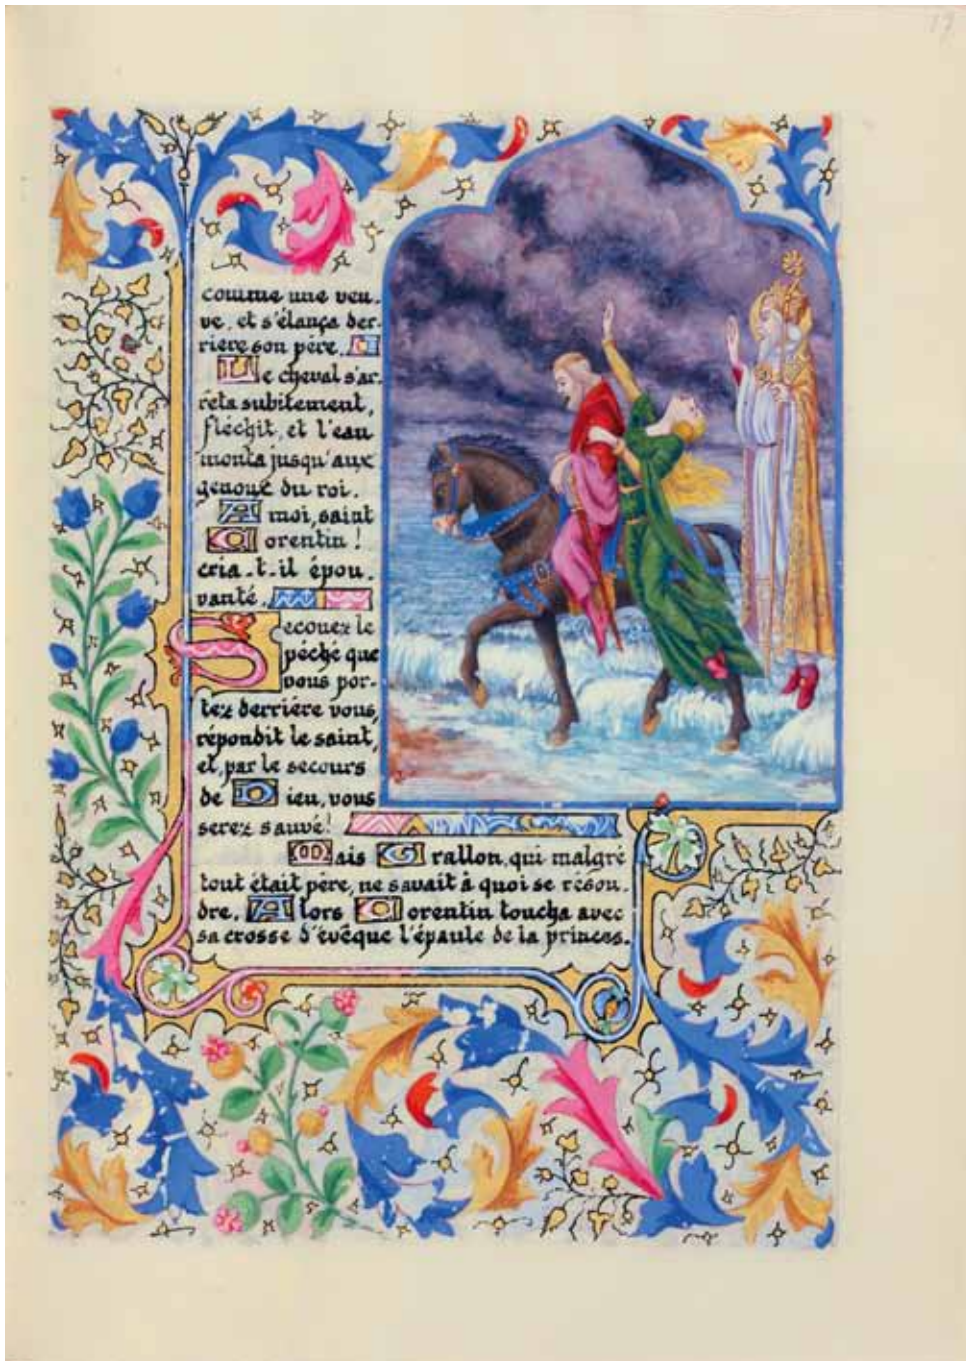 19
comme une veu-
ve, et s'élança der-
rière son père.
Le cheval s'ar-
rêta subitement,
fléchit, et l'eau
monta jusqu'aux
genoux du roi.
A moi, saint
Corentin !
cria-t-il épou-
vanté.
Secouez le
péché que
vous por-
tez derrière vous,
répondit le saint,
et, par le secours
de Dieu, vous
serez sauvé!
Mais Grallon, qui malgré
tout était père, ne savait à quoi se résou-
dre. Alors Corentin toucha avec
sa crosse d'évêque l'épaule de la princes-